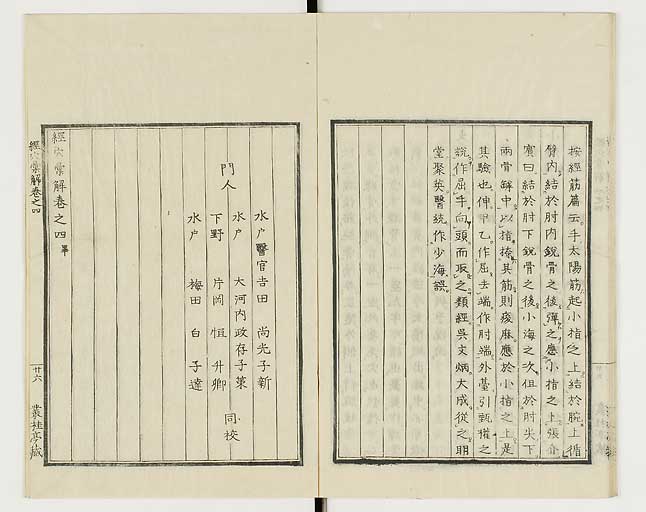 按經筋篇云手太陽筋起小指之上結於腕上循
臂內結於肘內銳骨之後彈之應小指之上張介
賓曰結於肘下銳骨之後小海之次但於肘尖下
兩骨罅中以指捺其筋則痠麻應於小指之上是
其驗也伸甲乙作屈去端作肘端外臺引甄權之
統作屈手向頭而取之類經吳文炳大成從之明
堂聚英醫統作少海誤
門人
水戶醫官吉田 尚光子新
水戶 大河內政存子葉
下野 片岡 恒 升卿 同校
水戶 梅田 白 子達
經穴彙解卷之四畢
經穴彙解卷之四
廿六
叢桂亭藏